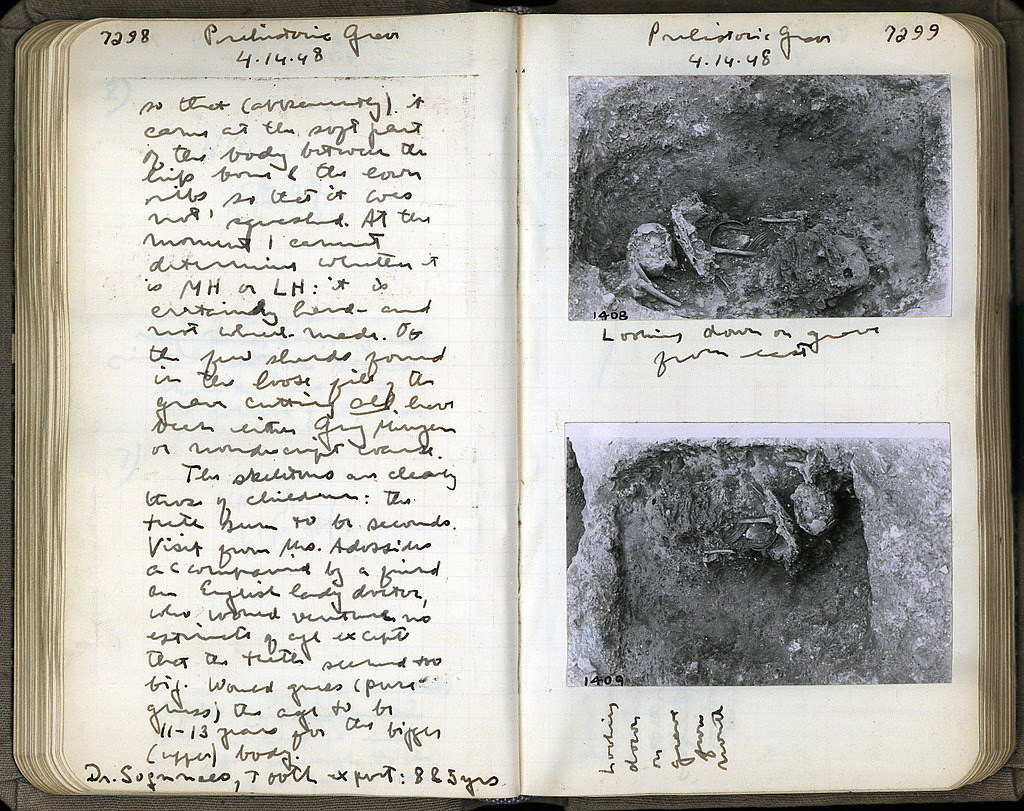 7298 Prehistoric Grave
4.14.48
so that (apparently) it
came at the soft part
of the body between the
hip bone & the lower
ribs so that it was
not squashed. At the
moment I cannot
determine whether it
is MH or LH: it is
certainly hand- and
not wheel-made. Of
the few sherds found
in the loose fill of the
grave cutting all have
been either Gray Minyan
or nondescript coarse.
The skeletons are clearly
those of children: the
teeth seem to be seconds.
Visit from Mrs. Adossides
accompanied by a friend,
an English lady doctor,
who would venture no
estimate of age except
that the teeth seemed too
big. Would guess (pure
guess) the age to be
11-13 years for the bigger
(upper) body.
Dr. tooth expert: 8 & 5 yrs.
Prehistoric Grave 7299
4.14.48
1408
Looking down on grave
from east
1409
Looking
down
on
grave
from
north